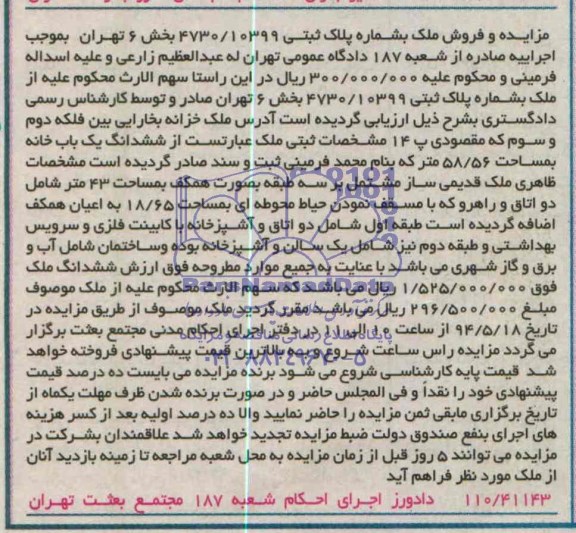 مزایده و فروش ملک بشماره پلاک ثبتی ۴۷۳۰/۱۰۳۹۹ بخش ۶ تهران بموجب
اجراییه صادره از شعبه ۱۸۷ دادگاه عمومی تهران له عبدالعظیم زارعی و علیه اسداله
فرمینی و محکوم علیه ۳۰۰/۰۰۰/۰۰۰ ریال در این راستا سهم الارث محکوم علیه از
ملک بشماره پلاک ثبتی ۴۷۳۰/۱۰۳۹۹ بخش ۶ تهران صادر و توسط کارشناس رسمی
دادگستری بشرح ذیل ارزیابی گردیده است آدرس ملک خزانه بخارایی بین فلکه دوم
و سوم که مقصودی پ ۱۴ مشخصات ثبتی ملک عبارتست از ششدانگ یک باب خانه
بمساحت ۵۸/۵۶ متر که بنام محمد فرمینی ثبت و سند صادر گردیده است مشخصات
ظاهری ملک قدیمی ساز مشتمل بر سه طبقه بصورت همکف بمساحت ۴۳ متر شامل
دو اتاق و راهرو که با مسقف نمودن حیاط محوطه ای بمساحت ۱۸/۶۵ به اعیان همکف
اضافه گردیده است طبقه اول شامل دو اتاق و آشپزخانه با کابینت فلزی و سرویس
بهداشتی و طبقه دوم نیز شامل یک سالن و آشپزخانه بوده وساختمان شامل آب و
برق و گاز شهری می باشد با عنایت به جمیع موارد مطروحه فوق ارزش ششدانگ ملک
فوق ۱/۵۲۵/۰۰۰/۰۰۰ ریال می باشد که سهم الارث محکوم علیه از ملک موصوف
مبلغ ۲۹۶/۵۰۰/۰۰۰ ریال می باشد مقرر گردید ملک موصوف از طریق مزایده در
تاریخ ۹۴/۵/۱۸ از ساعت ۱۰ الی ۱۱ در دفتر اجرای احکام مدنی مجتمع بعثت برگزار
می گردد مزایده راس ساعت شروع و به بالاترین قیمت پیشنهادی فروخته خواهد
شد قیمت پایه کارشناسی شروع می شود برنده مزایده می بایست ده درصد قیمت
پیشنهادی خود را نقداً و فی المجلس حاضر و در صورت برنده شدن ظرف مهلت یکماه از
تاریخ برگزاری مابقی ثمن مزایده را حاضر نمایید والا ده درصد اولیه بعد از کسر هزینه
های اجرای بنفع صندوق دولت ضبط مزایده تجدید خواهد شد علاقمندان بشرکت در
مزایده می توانند ۵ روز قبل از زمان مزایده به محل شعبه مراجعه تا زمینه بازدید آنان
از ملک مورد نظر فراهم آید
۱۱۰/۴۱۱۴۳ دادورز اجرای احکام شعبه ۱۸۷ مجتمع بعثت تهران